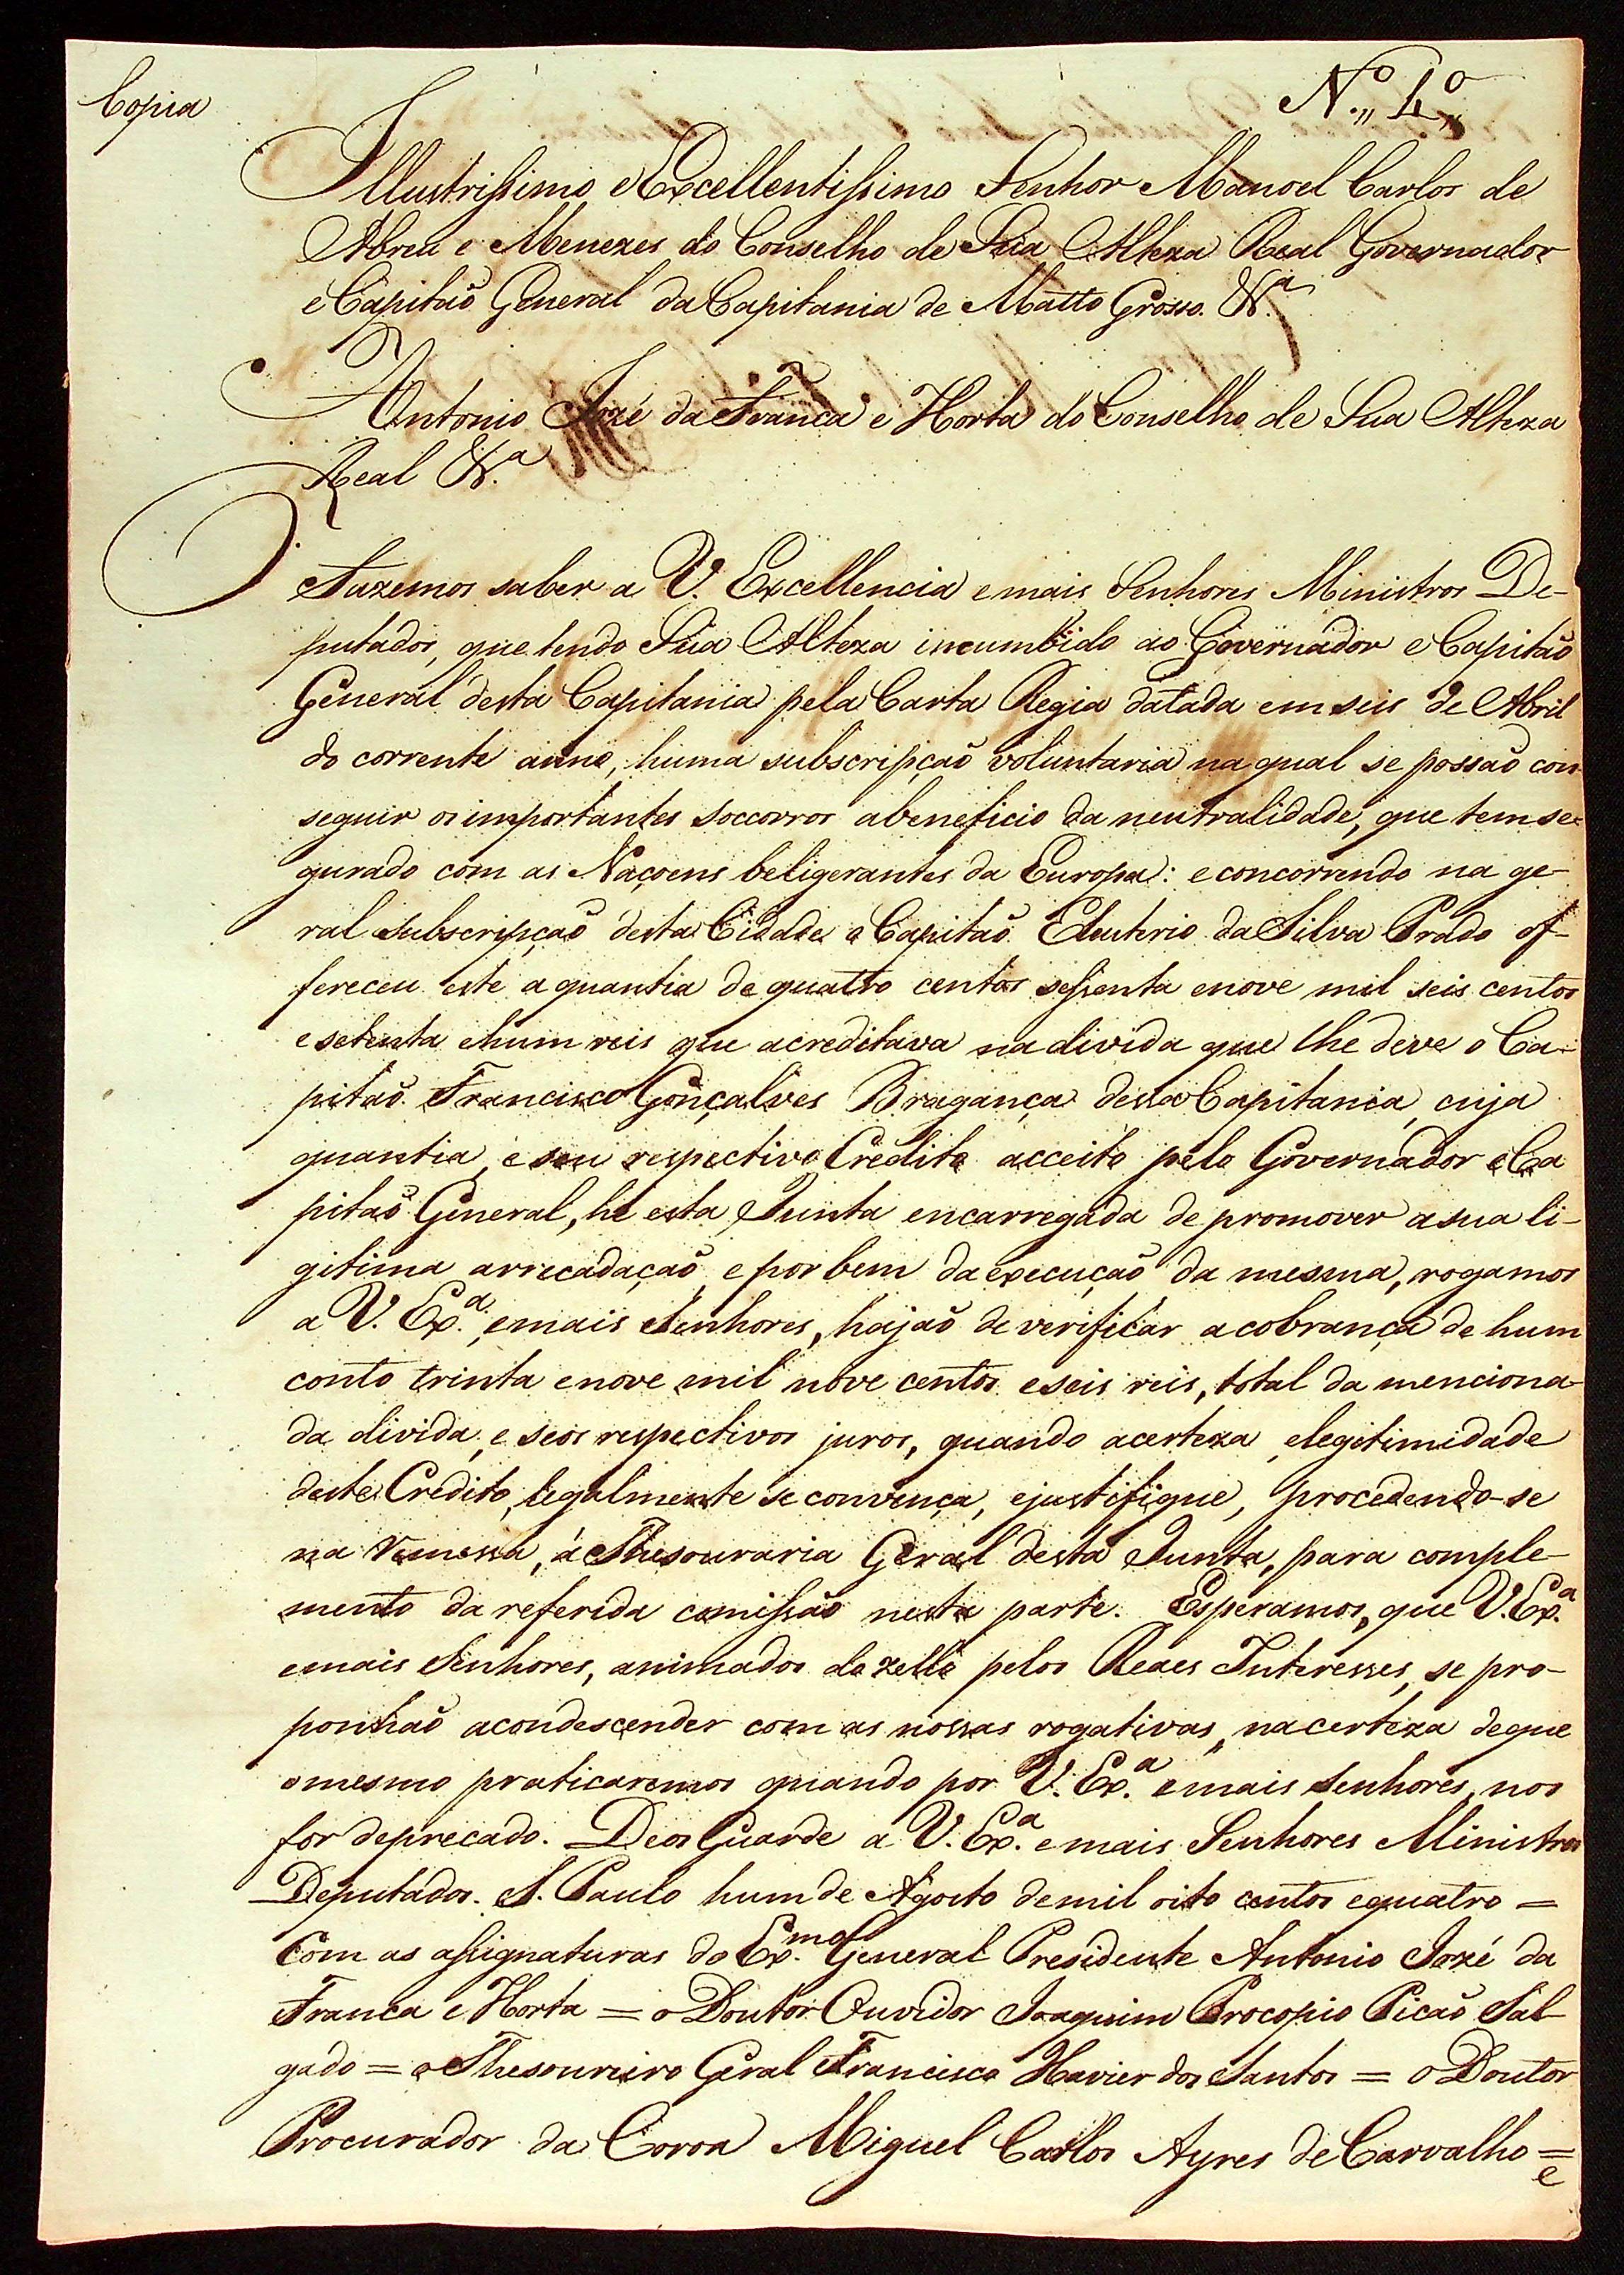 Copia
N.º 4º
Illustrissimo e Excellentissimo Senhor Manoel Carlos de
Abreu e Menezes do Conselho de Sua Alteza Real Governador
e Capitaõ General da Capitania de Matto Grosso. &.ª
Antonio Jozé da Franca e Horta do Conselho de Sua Alteza
Real &.ª
Fazemos saber a V. Excellencia e mais Senhores Ministros De-
putados, que tendo Sua Alteza incumbido ao Governador e Capitaõ
General desta Capitania pela Carta Regia datada em seis de Abril
do corrente anno, huma subscripçaõ voluntaria na qual se possaõ con-
seguir os importantes soccorros a beneficio da neutralidade, que tem se-
gurado com as Naçoens beligerantes da Europa: e concorrendo na ge-
ral subscripçaõ desta Cidade o Capitaõ Eleuterio da Silva Prado of-
fereceu este a quantia de quatro centos sessenta e nove mil seis centos
e setenta e hum reis que acreditava na divida que lhe deve o Ca-
pitaõ Francisco Gonçalves Bragança dessa Capitania, cuja
quantia, e seu respectivo Credito acceito pelo Governador e Ca
pitaõ General, he esta Junta encarregada de promover a sua li-
gitima arrecadaçaõ, e por bem da execuçaõ da mesma, rogamos
a V. Ex.ª, e mais Senhores, hajaõ de verificar a cobrança de hum
conto trinta e nove mil nove centos e seis reis, total da menciona-
da divida, e seos respectivos juros, quando a certeza, e legitimidade
deste Credito, legalmente se convença, e justifique, procedendo-se
na remessa, á Thesouraria Geral desta Junta, para comple-
mento da referida comissaõ nesta parte. Esperamos, que V. Ex.ª
e mais Senhores, animados do zello pelos Reaes Interesses, se pro-
ponhaõ a condescender com as nossas rogativas, na certeza de que
o mesmo praticaremos quando por V. Ex.ª e mais Senhores, nos
for deprecado. Deos Guarde a V. Ex.ª e mais Senhores Ministros
Deputados. S. Paulo hum de Agosto de mil oito centos e quatro =
Com as assignaturas do Ex.mo General Presidente Antonio Jozé da
Franca e Horta = o Doutor Ouvidor Joaquim Procopio Picaõ Sal-
gado = o Thesoureiro Geral Francisco Xavier dos Santos = o Doutor
Procurador da Coroa Miguel Carlos Ayres de Carvalho =
e